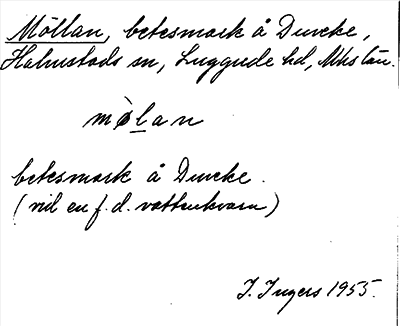 Möllan, betesmark å Duveke,
Halmstads sn, Luggude hd, Mhs län.
mòlan
betesmark å Duveke.
(vid en f.d. vattenkvarn)
I. Ingers 1955.